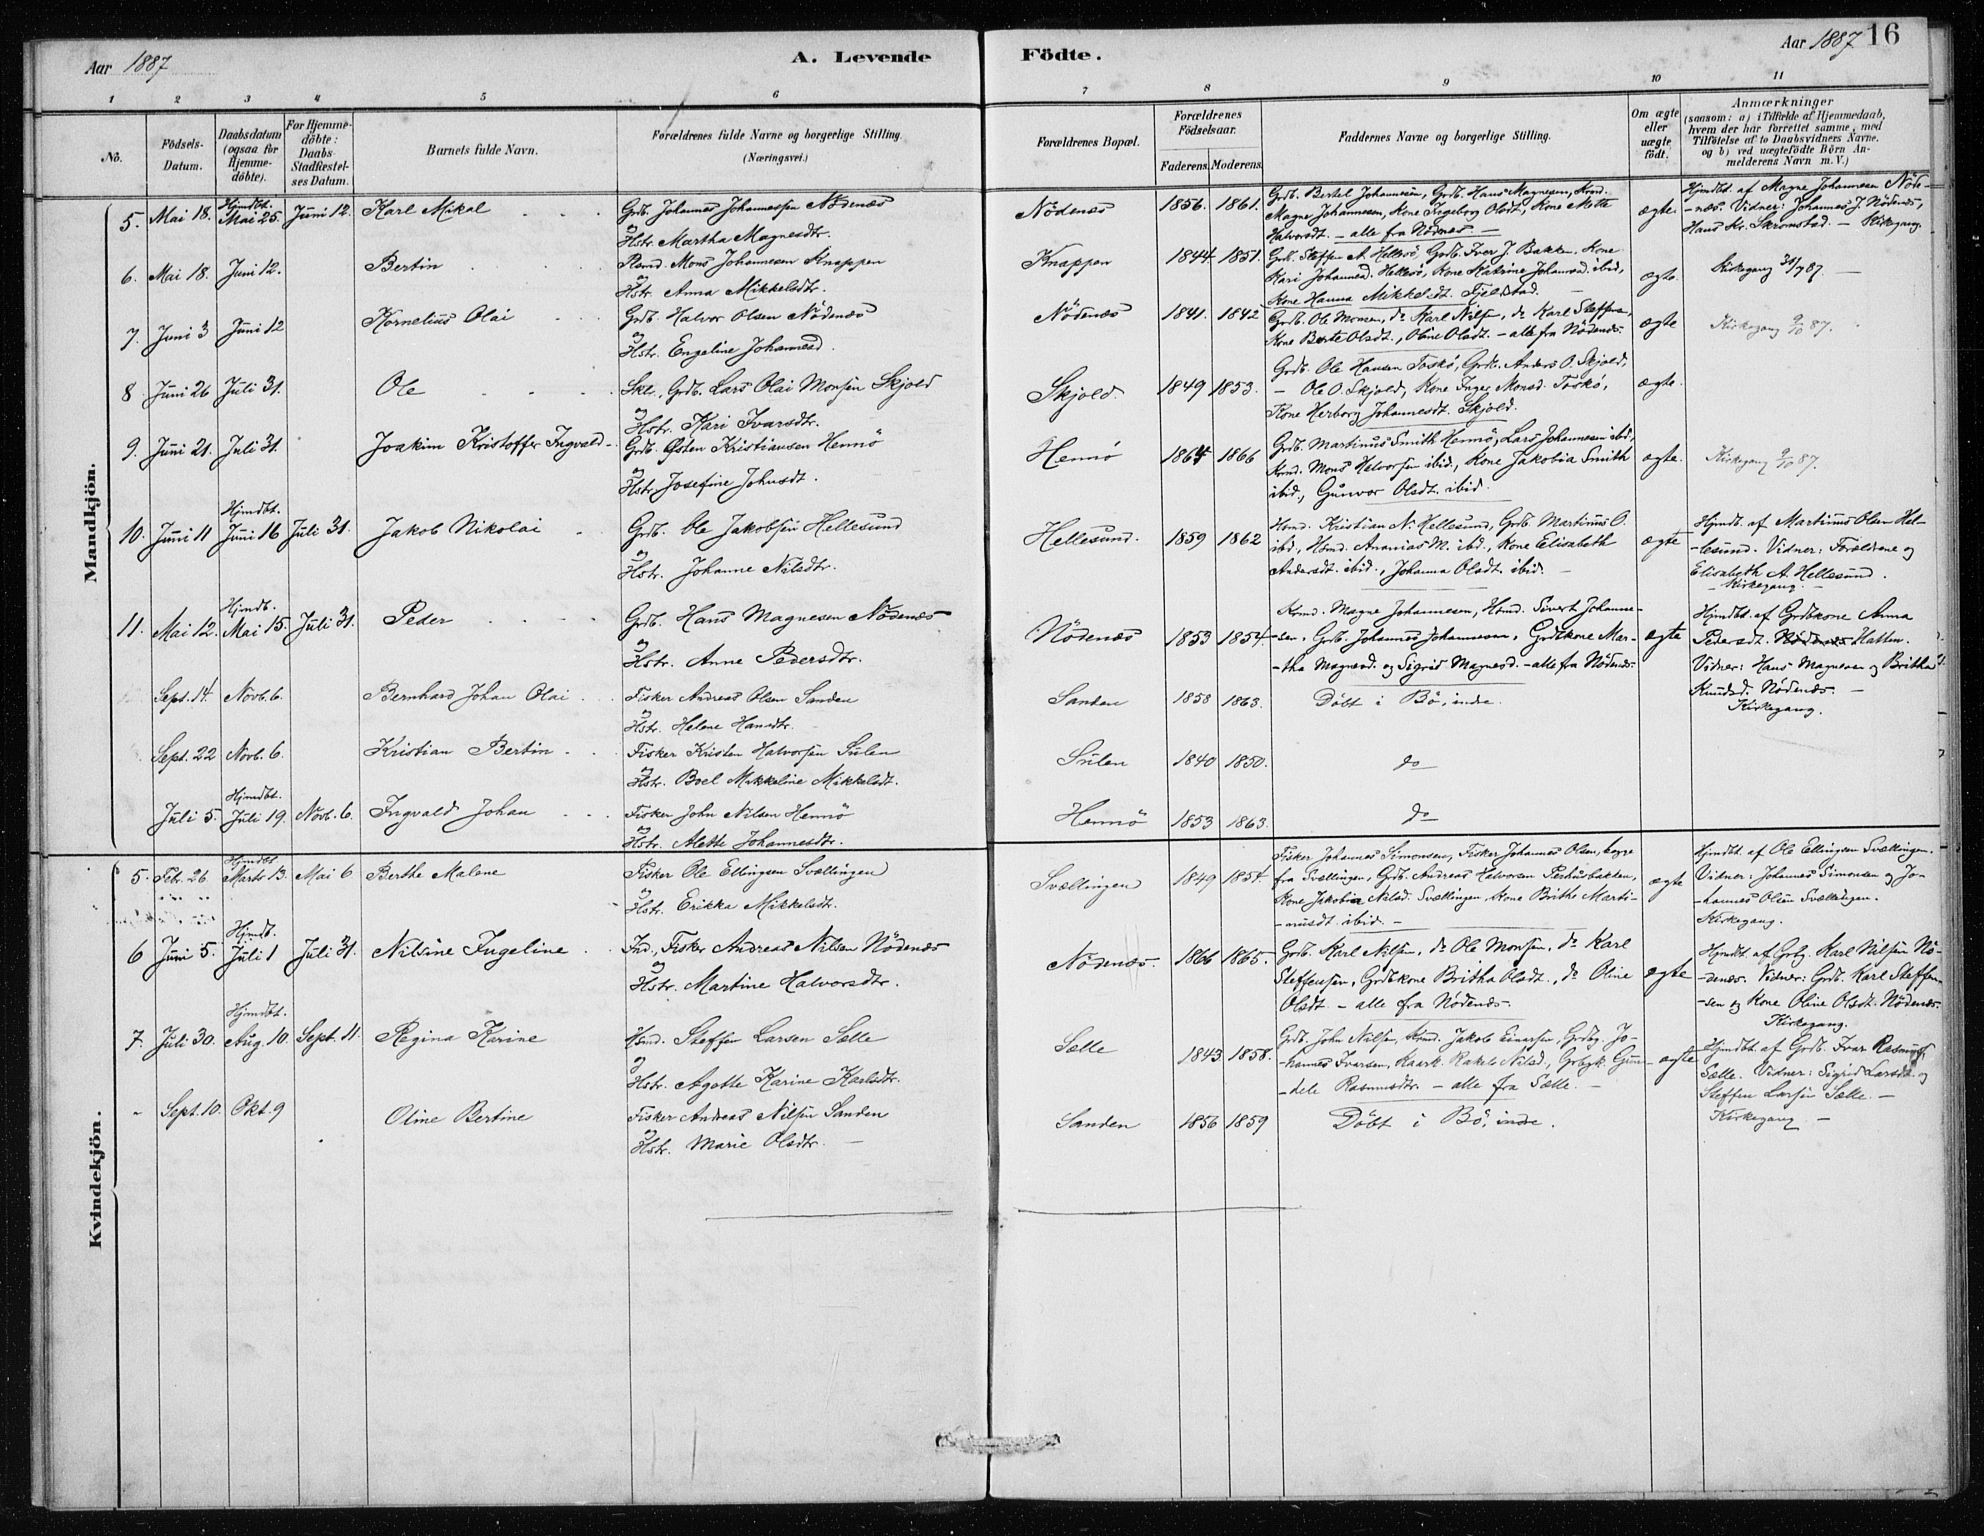 Aar 1887
A. Levende
Födte.
Aar 1887
16
1 2 3 4 5 6 7 8 9 10 11
No.
Födsels-Datum.
Daabsdatum (ogsaa for Hjemme-döbte).
For Hjemme-döbte: Daabs Stadfæstel-ses Datum.
Barnets fulde Navn.
Forældrenes fulde Navne og borgerlige Stilling.
(Næringsvei.)
Forældrenes Bopæl.
Forældrenes Födselsaar.
Faderens. Moderens.
Faddernes Navne og borgerlige Stilling.
Om ægte eller uægte födt.
Anmærkninger
(saasom: a) i Tilfælde af Hjemmedaab, hvem der har forrettet samme, med Tilföielse af to Daabsvidners Navne, og b) ved uægtefödte Börn An-melderens Navn m. V.)
Mandkjön.
5. Mai 18. Hjmdbt. Mai 25. Juni 12. Karl Mikal
Grdb. Johannes Johannessen Nödenæs
og
Hstr. Martha Magnesdtr.
Nödenæs 1856. 1861.
Grdb. Bertel Johannesen, Grdb. Hans Magnesen, Kvmd.
Magne Johannesen, Kone Ingeborg Olsdt., Kone Mette
Halvorsdt. – alle fra Nödenæs –
ægte.
Hjmdbt. af Magne Johannesen Nöde-
-næs. Vidner: Johannes J. Nödenæs,
Hans Kr. Skromstad. – Kirkegang.
6. Mai 18. Juni 12. Bertin
Mons Johannesen Knappen
og
Hstr. Anna Mikkelsdtr.
Knappen 1844 1851.
Grb. Steffen A. Hellesö, Grdb. Iver J. Bakken. Kone
Kari Johannesd. Hellesö, Kone Katrine Johannesd. ibid.,
Kone Hanna Mikkelsdt. Fjeldstad. –
ægte.
Kirkegang 31/7 87. –
7. Juni 3 Juni 12 Kornelius Olai
Grdb. Halvor Olsen Nödenæs
og
Hstr. Engeline Johannesd.
Nödenæs 1841. 1842
Grdb. Ole Monsen, do Karl Nilsen, do Karl Steffens.,
Kone Berte Olsdt., Oline Olsdt. – alle fra Nödenæs
ægte
Kirkegang 9/10 87.
8 Juni 26 Juli 31. Ole
Skl., Grdb. Lars Olai Monsen Skjold
og
Hstr. Kari Ivarsdtr.
Skjold. 1849 1853.
Grdb. Ole Hansen Toskö, Grdb. Anders O. Skjold,
– Ole O. Skjold, Kone Inger Monsd. Toskö,
Kone Herborg Johannesdt. Skjold.
ægte.
9. Juni 21. Juli 31. Joakim Kristoffer Ingvald
Grdb. Østen Kristiansen Hennö
og
Hstr. Josefine Johnsdt.
Hennö 1864 1866
Grdb. Martinus Smith Hennö, Lars Johannesen ibid.,
Kvmd. Mons Halvorsen ibid., Kone Jakobia Smith
ibid., Gunvor Olsdt. ibid.
ægte.
Kirkegang 9/10 87.
10. Juni 11 Hjmdbt. Juni 16 Juli 31. Jakob Nikolai
Grdb. Ole Jakobsen Hellesund
og
Hstr. Johanne Nilsdtr.
Hellesund. 1859 1862
Hsmd. Kristian N. Hellesund, Grdb. Martinus O.
ibd., Hsmd. Ananias M. ibd., Kone Elisabeth
Andersdt. ibid., Johanna Olsdt. ibid. –
ægte
Hjmdbt. af Martinus Olsen Hel-
-lesund. Vidner: Forældrene og
Elisabeth A. Hellesund.
– Kirkegang –
11. Mai 12. Hjmdbt. Mai 15. Juli 31. Peder
Grdb. Hans Magnesen Nödenæs
og
Hstr. Anne Pedersdtr.
Nödenæs 1853 1854.
Kvmd. Magne Johannesen, Hsmd. Sivert Johanne-
-sen, Grdb. Johannes Johannesen, Grdtkone Mar-
-tha Magnesd. og Sigrid Magnesd. – alle fra Nödenæs
ægte
Hjmdbt. af Grdtkone Anna
Pedersdt. Nödenæs Hatten.
Vidner: Hans Magnesen og Britha
Knudsd. Nödenæs. –
Kirkegang.
Sept. 14. Novb. 6. Bernhard Johan Olai
Fisker Andreas Olsen Sanden
og
Hstr. Helene Hansdtr.
Sanden 1858 1863.
Döbt i Bö, indre.
Sept. 22 Novb. 6. Kristian Bertin
Fisker Kristen Halvorsen Sulen
og
Hstr. Boel Mikkeline Mikkelsdt.
Sulen 1840 1850.
do
Juli 5. Hjmdbt. Juli 19. Novb. 6. Ingvald Johan
Fisker John Nilsen Hennö
og
Hstr. Alette Johannesdtr.
Hennö 1853 1863.
do
Kvindekjön.
5. Febr. 26. Hjmdbt. Marts 13. Mai 6 Berthe Malene
Fisker Ole Ellingsen Svællingen
og
Hstr. Erikka Mikkelsdt.
Svællingen 1849 1854.
Fisker Johannes Simonsen, Fisker Johannes Olsen, begge
fra Svællingen, Grdb. Andreas Halvorsen Pershusbakken,
Kone Jakobia Nilsd. Svællingen, Kone Brithe Marti-
-nusdt ibid. –
ægte
Hjmdbt. af Ole Ellingsen Svællingen.
Vidner: Johannes Simonsen og Jo-
-hannes Olsen Svællingen.
Kirkegang.
6 Juni 5. Hjmdt. Juli 1 Juli 31. Nilsine Ingeline
Ind., Fisker Andreas Nilsen Nödenæs
og
Hstr. Martine Halvorsdtr.
Nödenæs. 1866 1865.
Grdb. Karl Nilsen, do Ole Monsen, do Karl
Steffensen, Grdtkone Britha Olsdt., do Oline
Olsdt – alle fra Nödenæs.
ægte
Hjmdbt. af Grbg. Karl Nilsen Nö-
-denæs. Vidner: Grdb. Karl Steffen-
-sen og Kone Oline Olsdt. Nödenæs.
Kirkegang.
7. Juli 30. Hjmdbt. Aug. 10. Sept. 11. Regina Karine
Hsmd. Steffen Larsen Sælle
og
Hstr. Agathe Karine Karlsdtr.
Sælle 1843 1858.
Grdb. John Nilsen, Kvmd. Jakob Einarsen, Grdbg. Jo-
-hannes Ivarsen, Rakel Nilsd., Grbgk. Gun-
-hele Rasmusdtr. – alle fra Sælle. –
ægte
Hjmdbt. af Grdb. Ivar Rasmuss.
Sælle. Vidner: Sigrid Larsdt. og
Steffen Larsen Sælle. –
Kirkegang –
" Sept. 10. Okt. 9 Oline Bertine
Fisker Andreas Nilsen Sanden
og
Hstr. Marie Olsdtr. –
Sanden 1856 1859
Döbt i Bö, indre.